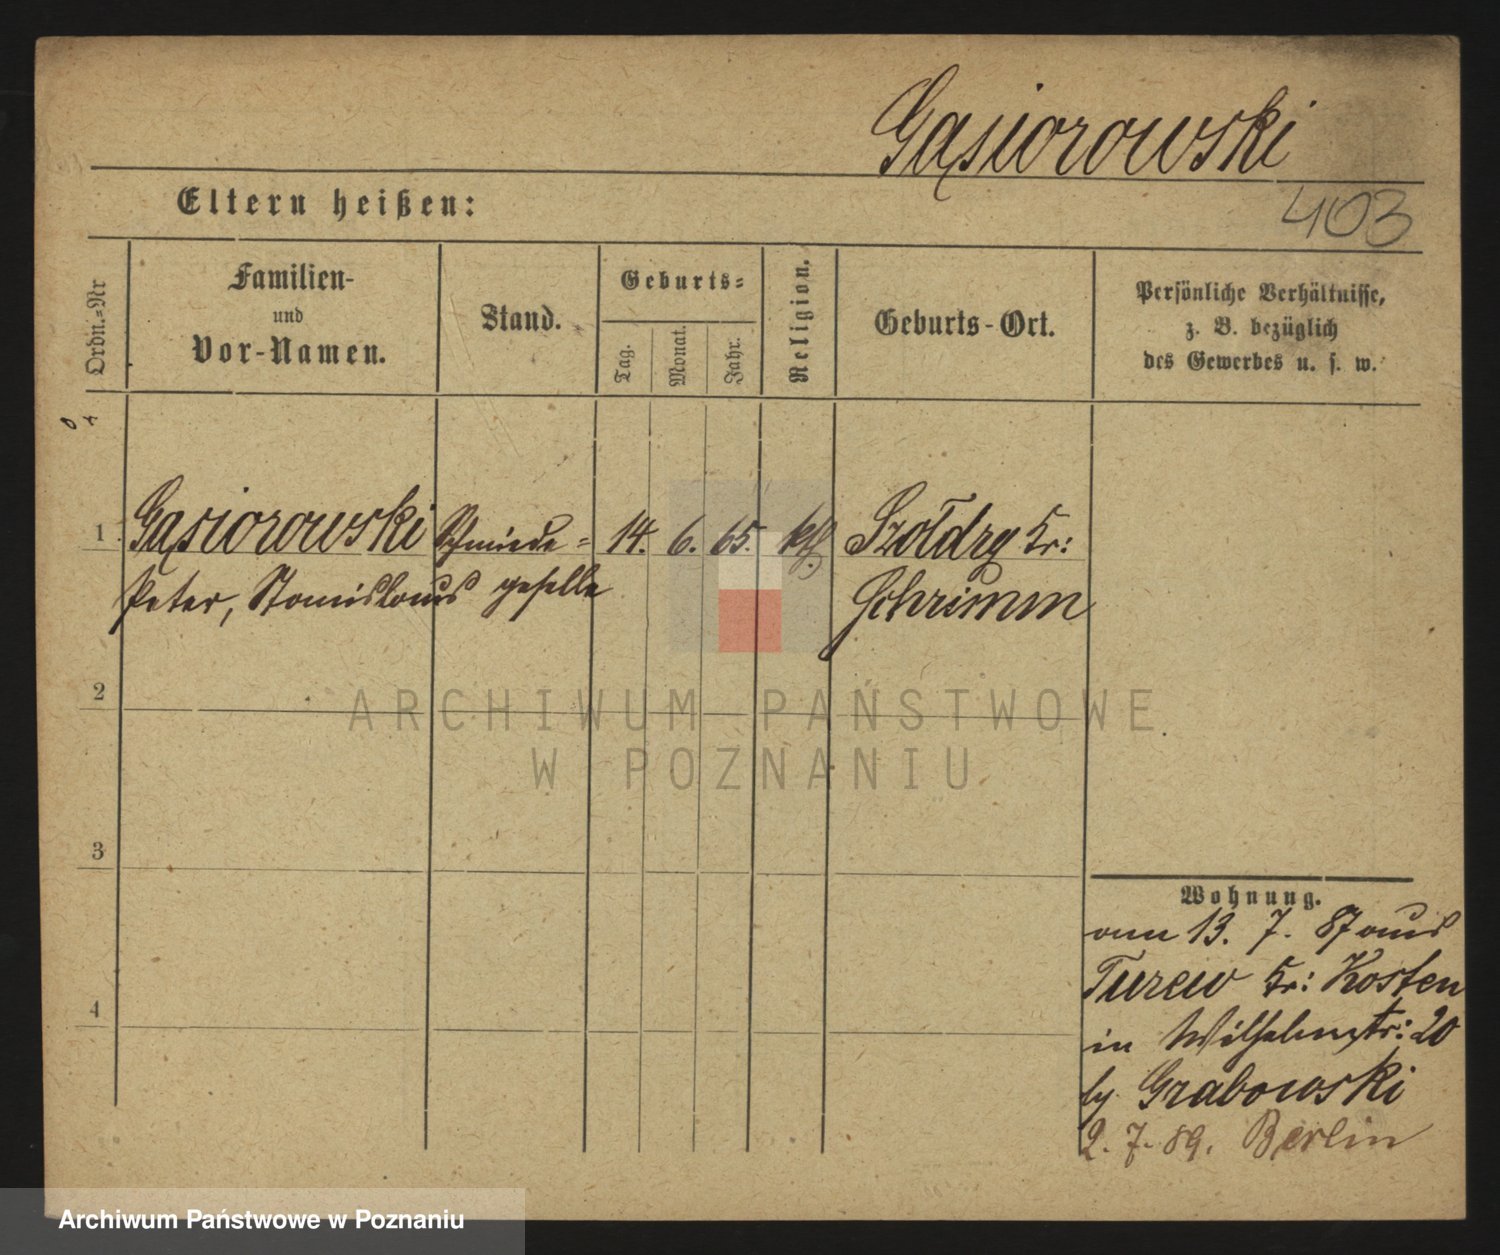 Gąsiorowski
403
Eltern heißen:
Ordn.=Nr
Familien-
und
Vor-Namen.
Stand.
Geburts=
Tag.
Monat.
Jahr.
Religion.
Geburts-Ort.
Persönliche Verhältnisse,
z. B. bezüglich
des Gewerbes u. s. w.
1. Gąsiorowski Schmiede= 14. 6. 65. kth. Szołdry Kr:
Peter, Stanislaus geselle Schrimm
2
ARCHIWUM PAŃSTWOWE
W POZNANIU
3
4
Wohnung.
am 13. 7. 87 aus
Turew Kr: Kosten
in Wilhelmstr: 20
by Grabowski
2. 7. 89. Berlin
Archiwum Państwowe w Poznaniu